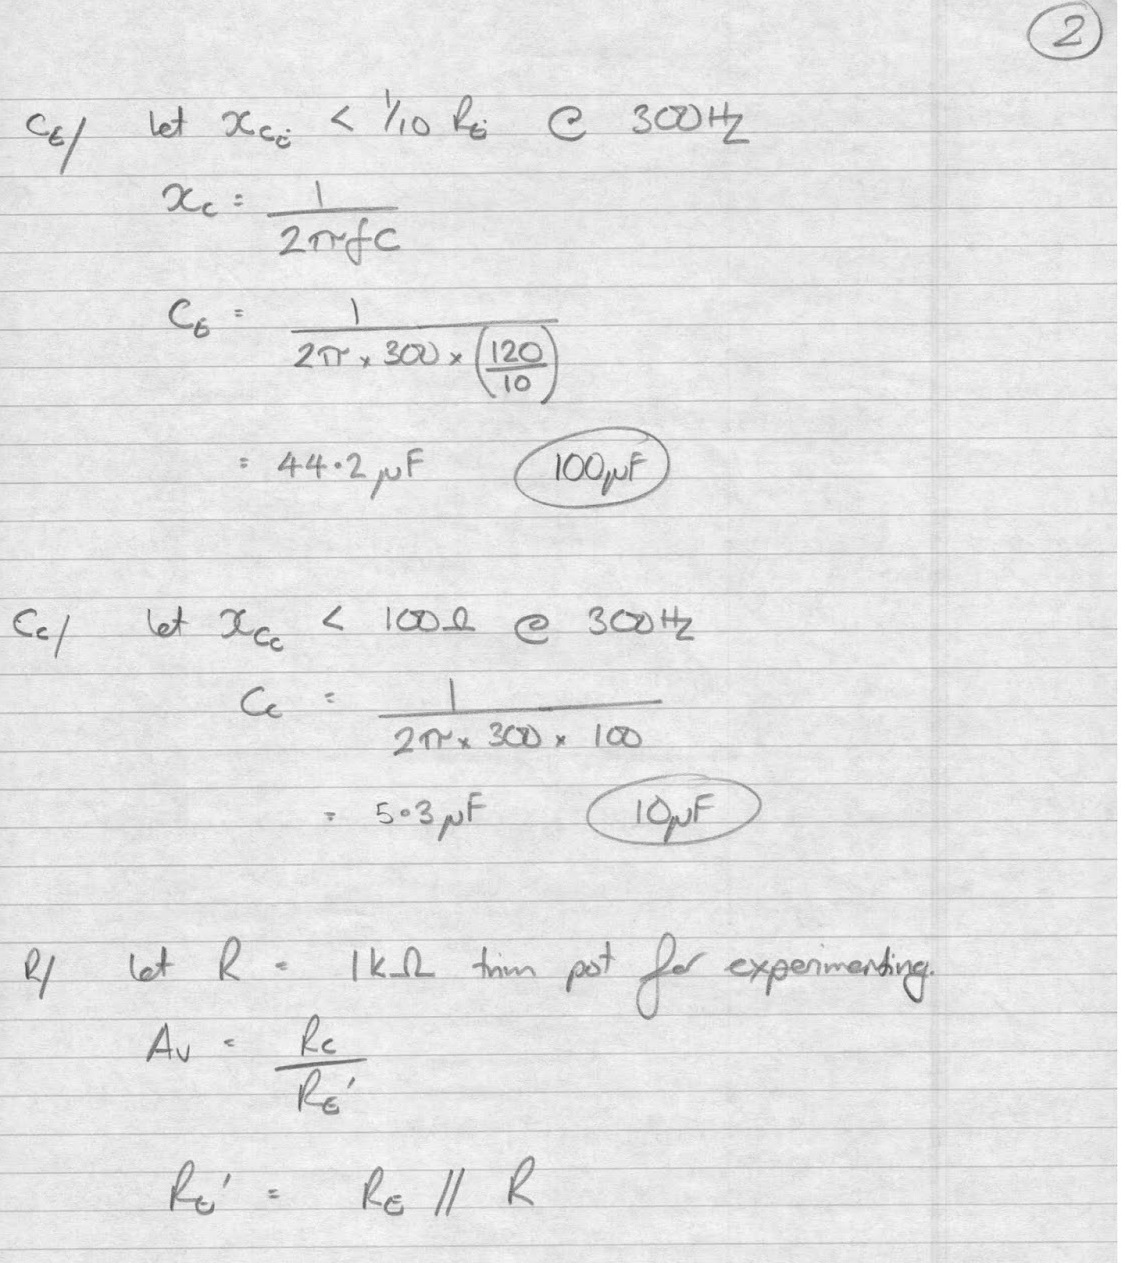 2
C_E/ let x_{C_E} < 1/10 R_E @ 300Hz
x_c = 1 / 2πfC
C_E = 1 / 2π × 300 × (120/10)
= 44.2 μF 100μF
C_c/ let x_{C_c} < 100Ω @ 300Hz
C_c = 1 / 2π × 300 × 100
= 5.3 μF 10μF
R/ let R = 1kΩ trim pot for experimenting.
A_v = R_C / R_E'
R_E' = R_E // R